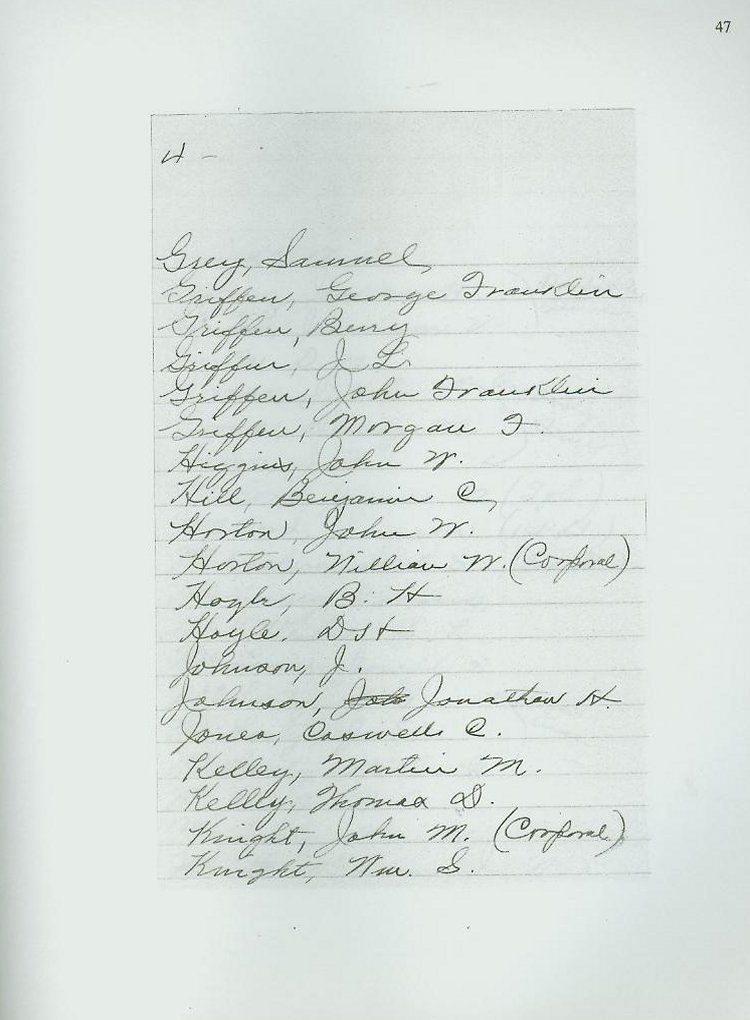 47
4 -
Grey, Samuel
Griffen, George Franklin
Griffen, Berry
Griffin, J. L.
Griffen, John Franklin
Griffen, Morgan F.
Higgins, John W.
Hill, Benjamin C,
Horton, John W.
Horton, William W. (Corporal)
Hoyle, B. H
Hoyle. D S H
Johnson, J.
Johnson, Jonathan H.
Jones, Caswell C.
Kelley, Martin M.
Kelley, Thomas D.
Knight, John M. (Corporal)
Knight, Wm. S.